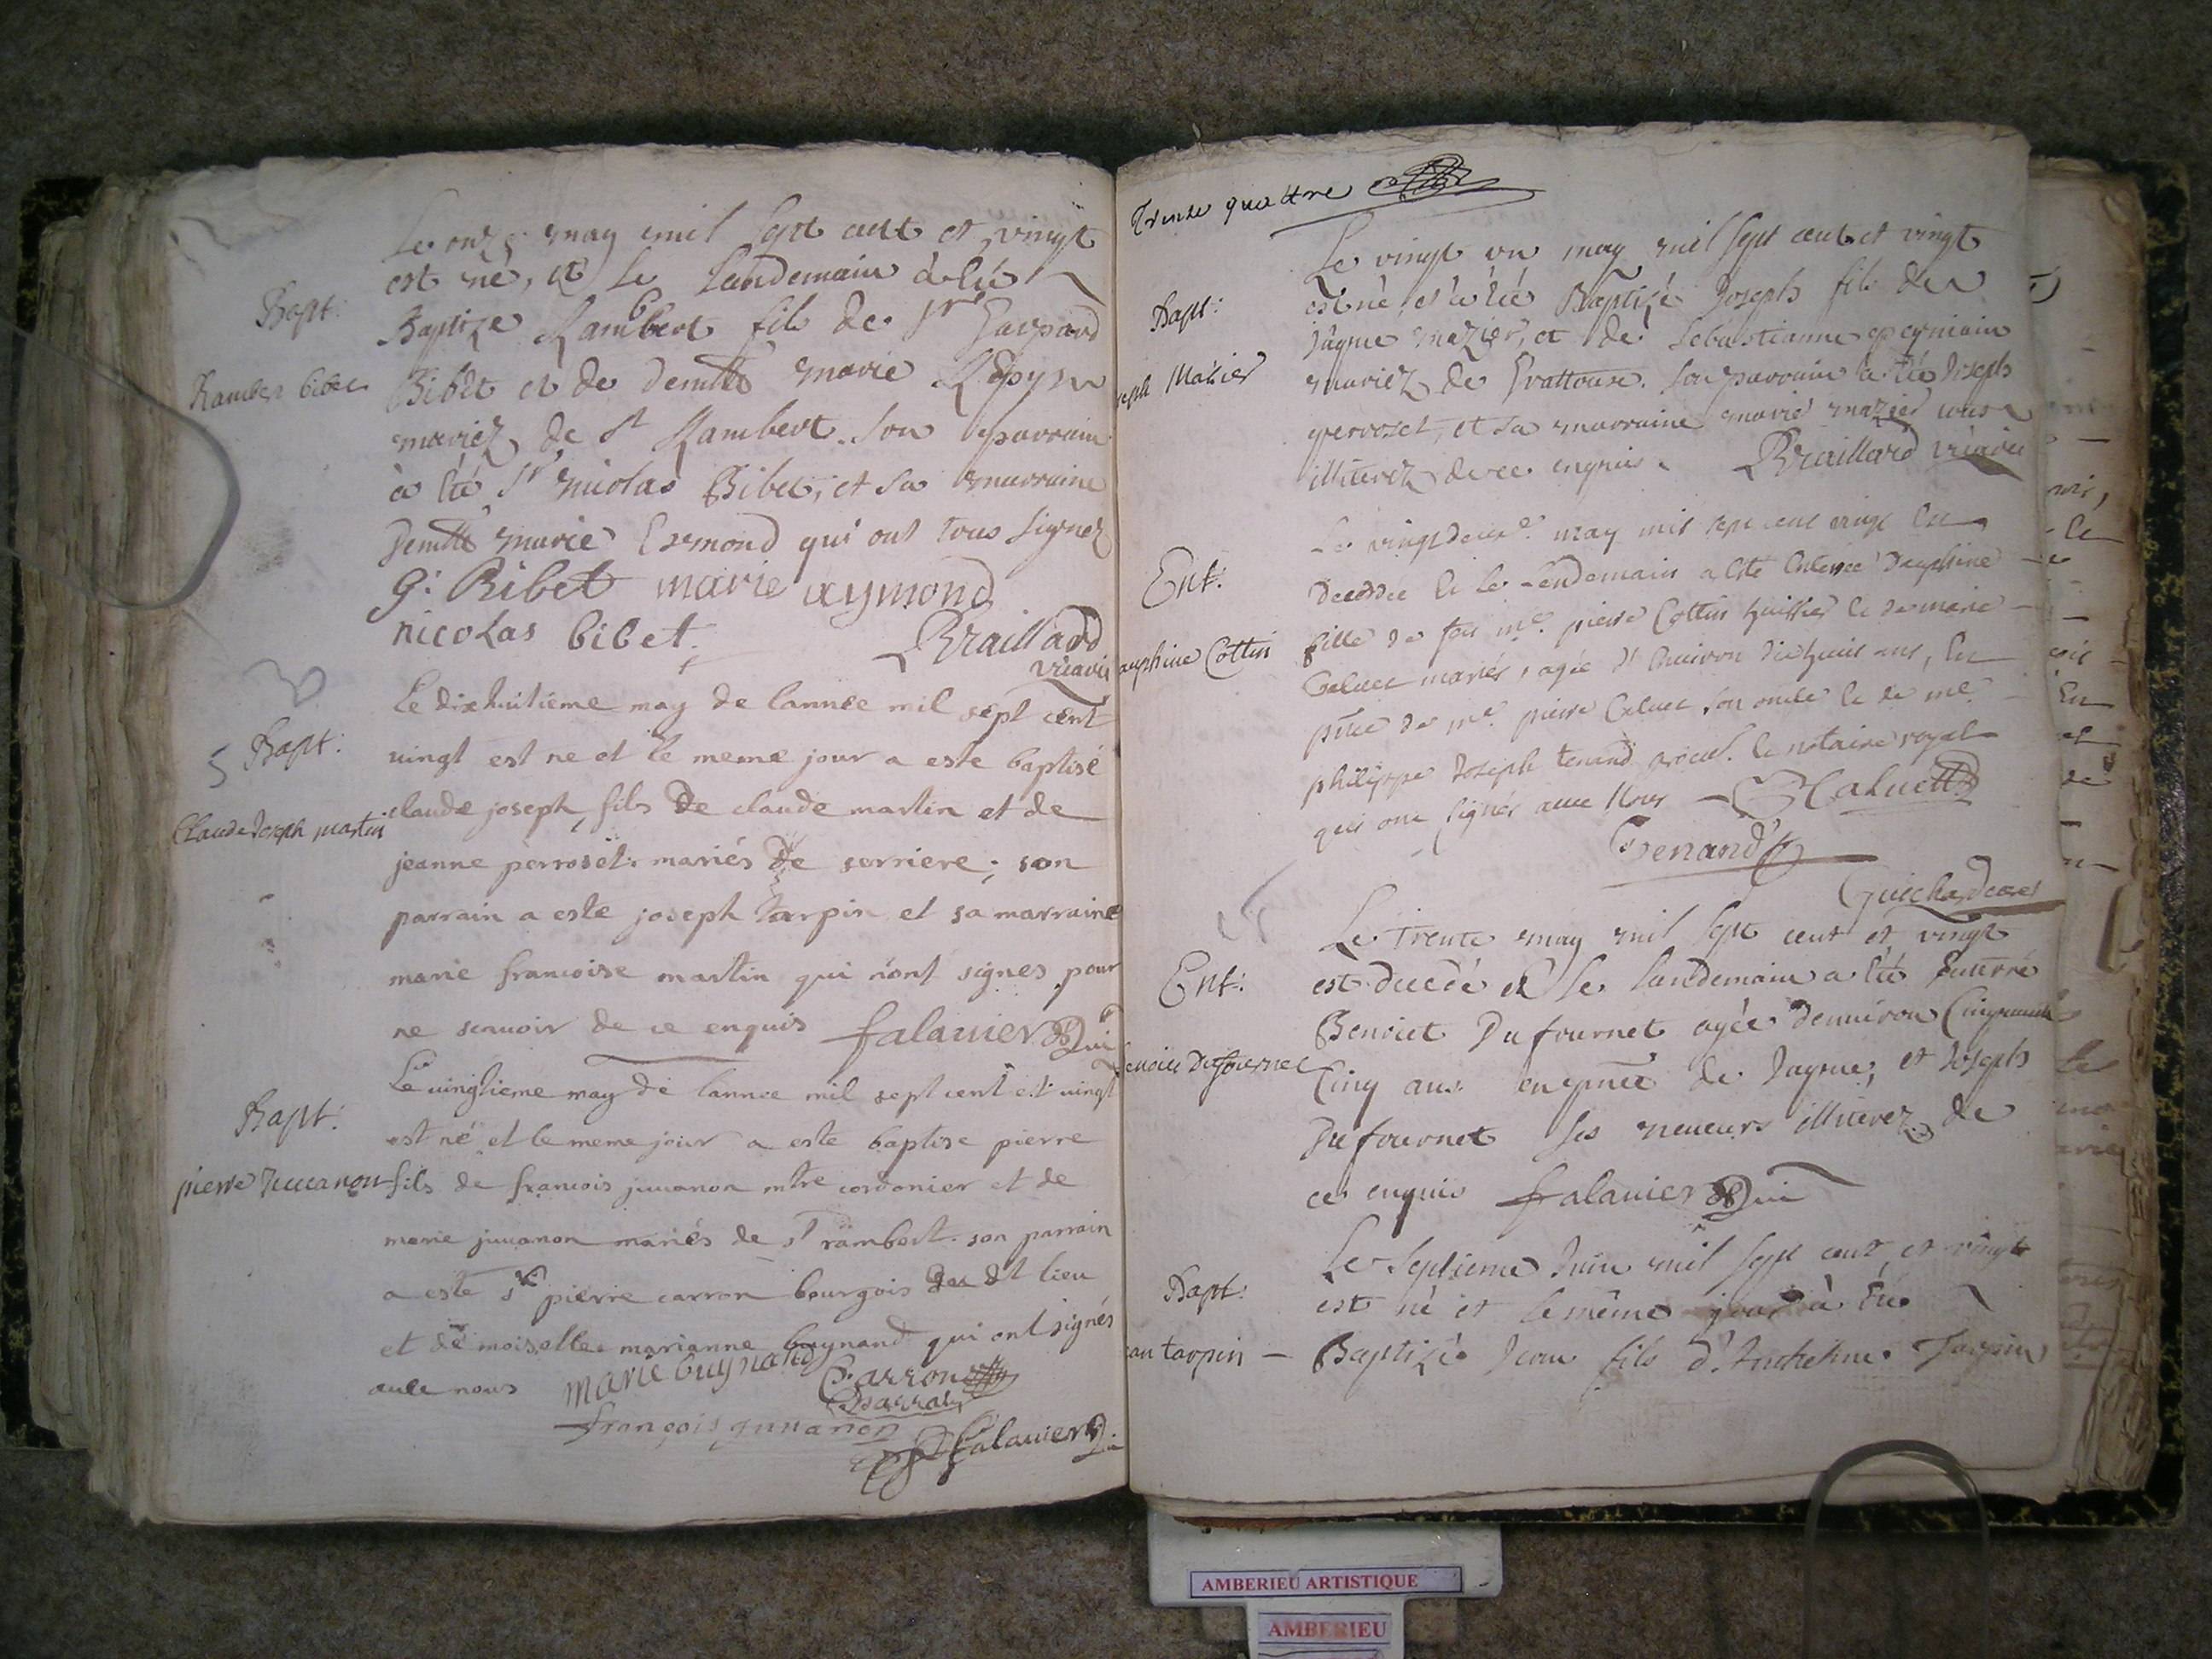 Le onze may mil sept cent et vingt
est né, et le landemain à été
Bapt:
Baptize Rambert fils de Sr Gaspard
Rambert bibet
Bibet et de demlle marie
mariez de St Rambert. Son parrain
à été Sr nicolas Bibet, et sa marraine
demlle marie Eymond qui ont tous signez
G. Bibet marie aymond
nicolas bibet. Braillard
vicaire
Le dixhuitième may de lannee mil sept cent
Bapt:
vingt est ne et le meme jour a este baptisé
Claude Joseph martin
claude joseph fils de claude martin et de
jeanne perroset mariés de serriere; son
parrain a este joseph tarpin et sa marraine
marie francoise martin qui n'ont signes pour
ne scauoir de ce enquis falauier vic
Le vingtieme may de lannee mil sept cent et vingt
Bapt:
est né et le meme jour a este baptise pierre
pierre Juuanon
fils de francois juuanon mtre cordonier et de
marie juuanon mariés de st rambert. son parrain
a este sr pierre carron bourgois du dt lieu
et demoiselle marianne buynand qui ont signés
auec nous marie buynand Carron
Barrat
françois juuanon
falauier vic
Trente quattre
Le vingt un may mil sept cent et vingt
Bapt:
est né et a été Baptizé Joseph fils de
seph Mazier
Jâque mazier, et de Sebastianne
mariez de Grattoux. Son parrain a été Joseph
perroset, et sa marraine marie mazier tous
illiterez de ce enquis. Braillard vicaire
Le vingtdeuxe may mil sept cent vingt est
Ent:
decedée et le lendemain a esté enterrée dauphine
fille de feu me. pierre Cottin huissier et de marie
auphine Cottin
Caluet mariés, agée d'enuiron dixhuit ans, en
pnce de me. pierre Caluet son oncle et de me.
philippe Joseph tenand procur. et notaire royal
qui ont signés auec Nous Caluet
Tenand
Guichard curé
Le trente may mil sept cent et vingt
Ent:
est decedé et le landemain a été enterré
Benoict Dufournet agée denuiron Cinquante
enoict Dufournet
Cinq ans en pnce de Jaque, et Joseph
Dufournet ses neueurs illiterez de
ce enquis falauier vic
Le septieme Juin mil sept cent et vingt
Bapt:
est né et le même jour à été
an tarpin
Baptizé Jean fils d'Anthelme Tarpin
AMBERIEU ARTISTIQUE
AMBERIEU